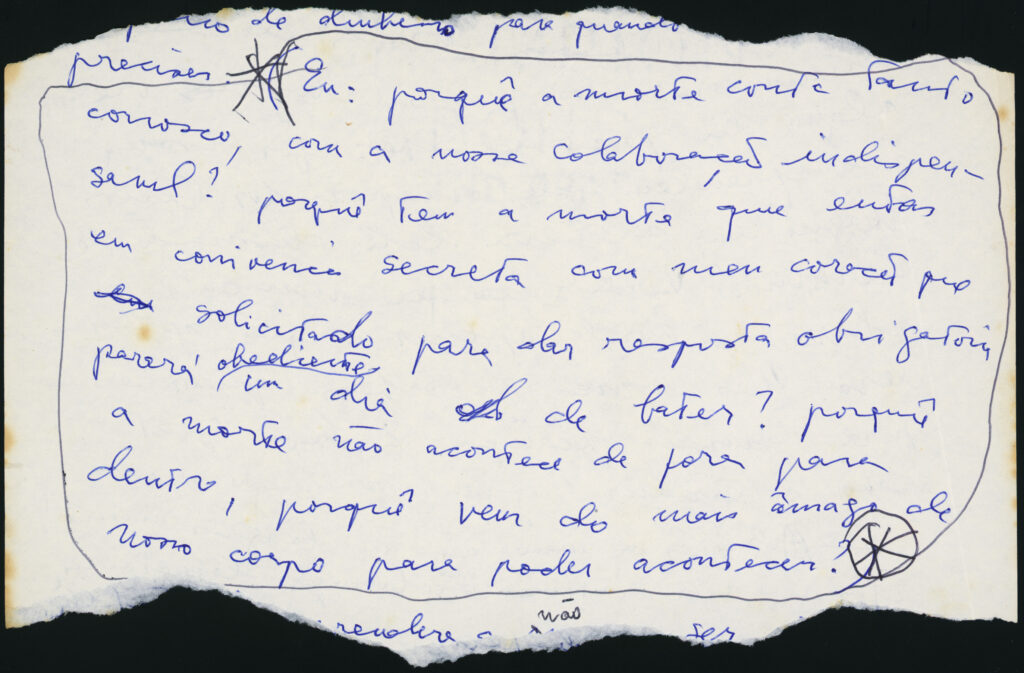 de dinheiro para quando
precisar. Eu: porquê a morte conta tanto
conosco, com a nossa colaboração indispen-
savel? porquê tem a morte que entrar
em conivencia secreta com meu coração que
solicitado para dar resposta obrigatoria
parará obediente
um dia de bater? porquê
a morte não acontece de fora para
dentro, porquê vem do mais âmago de
nosso corpo para poder acontecer?
não
ser